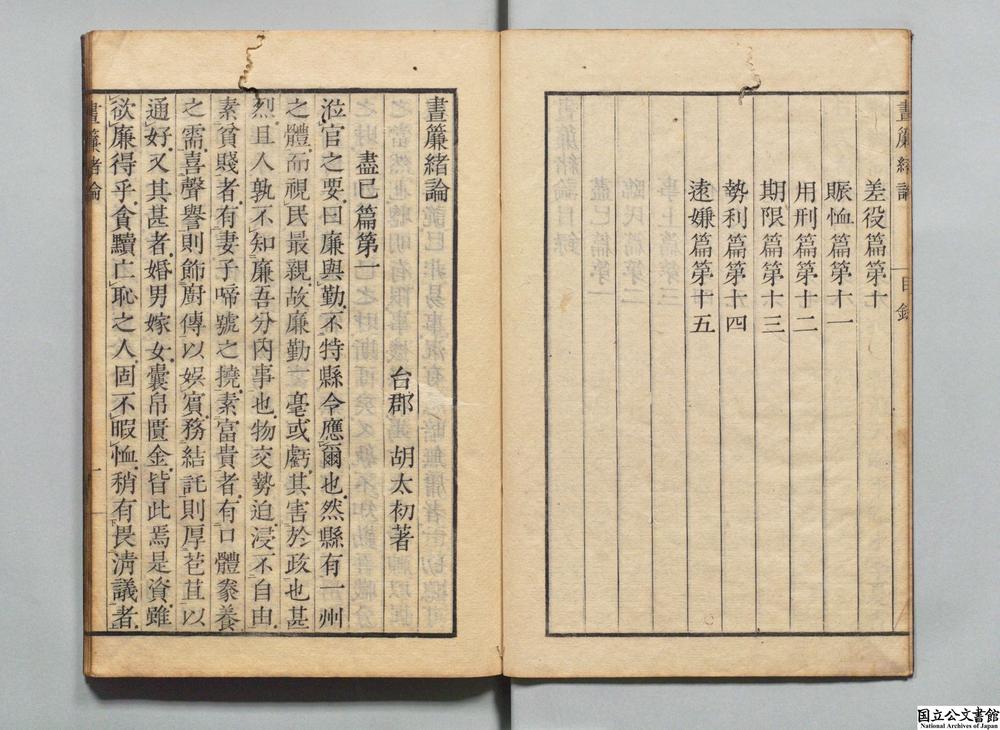 晝簾緒論
目錄
差役篇第十
賑恤篇第十一
用刑篇第十二
期限篇第十三
勢利篇第十四
遠嫌篇第十五
晝簾緒論
盡己篇第一
台郡 胡太初著
涖官之要曰廉與勤不特縣令應爾也然縣有一州
之體而視民最親故廉勤一毫或虧其害於政也甚
烈且人孰不知廉吾分內事也物交勢迫浸不自由
素貧賤者有妻子啼號之撓素富貴者有口體豢養
之需喜聲譽則飾廚傳以娛賓務結託則厚苞苴以
通好又其甚者婚男嫁女囊帛匱金皆此焉是資雖
欲廉得乎貪黷亡恥之人固不暇恤稍有畏淸議者
晝簾緒論
一
国立公文書館
National Archives of Japan